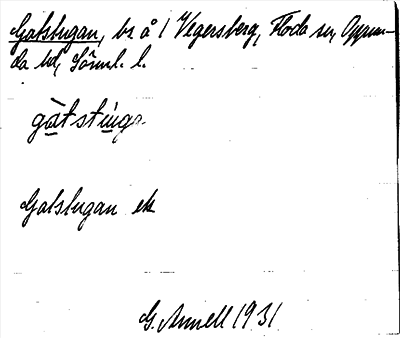 Gatstugan, bs å 1 Vegersberg, Floda sn, Oppun-
da hd, Södml. l.
gàtstùnga
Gatstugan ek
G. Annell 1931